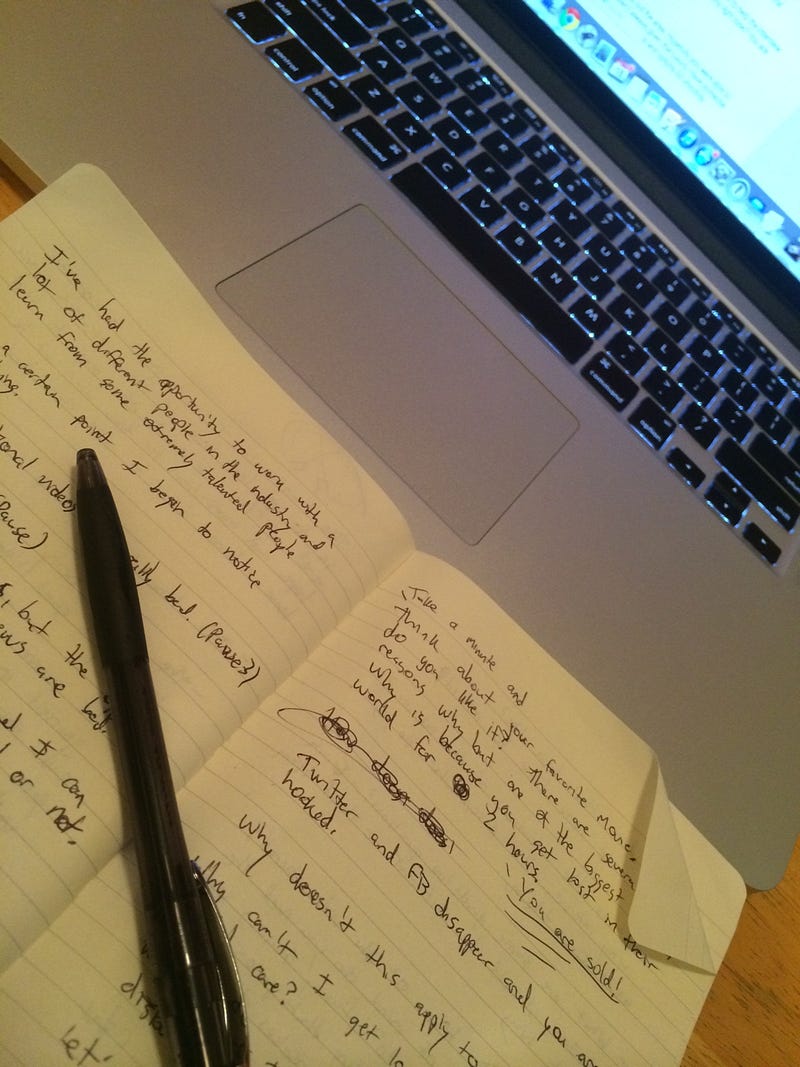 I've had the opportunity to work with a
lot of different people in the industry and
learn from some extremely talented people
a certain point I began to notice
bad. (Pause 3)
(Pause)
but the
are bad.
I can
or not.
Take a minute and
Think about your favorite movie.
do you like it? There are several
reasons why but one of the biggest
why is because you get lost in their
world for 2 hours. You are sold!
Twitter and FB disappear and you are
hooked.
Why doesn't this apply to
Why can't I get
care?
let
Q W E R T Y U I O P
A S D F G H J K L
Z X C V B N M
fn control option command command option